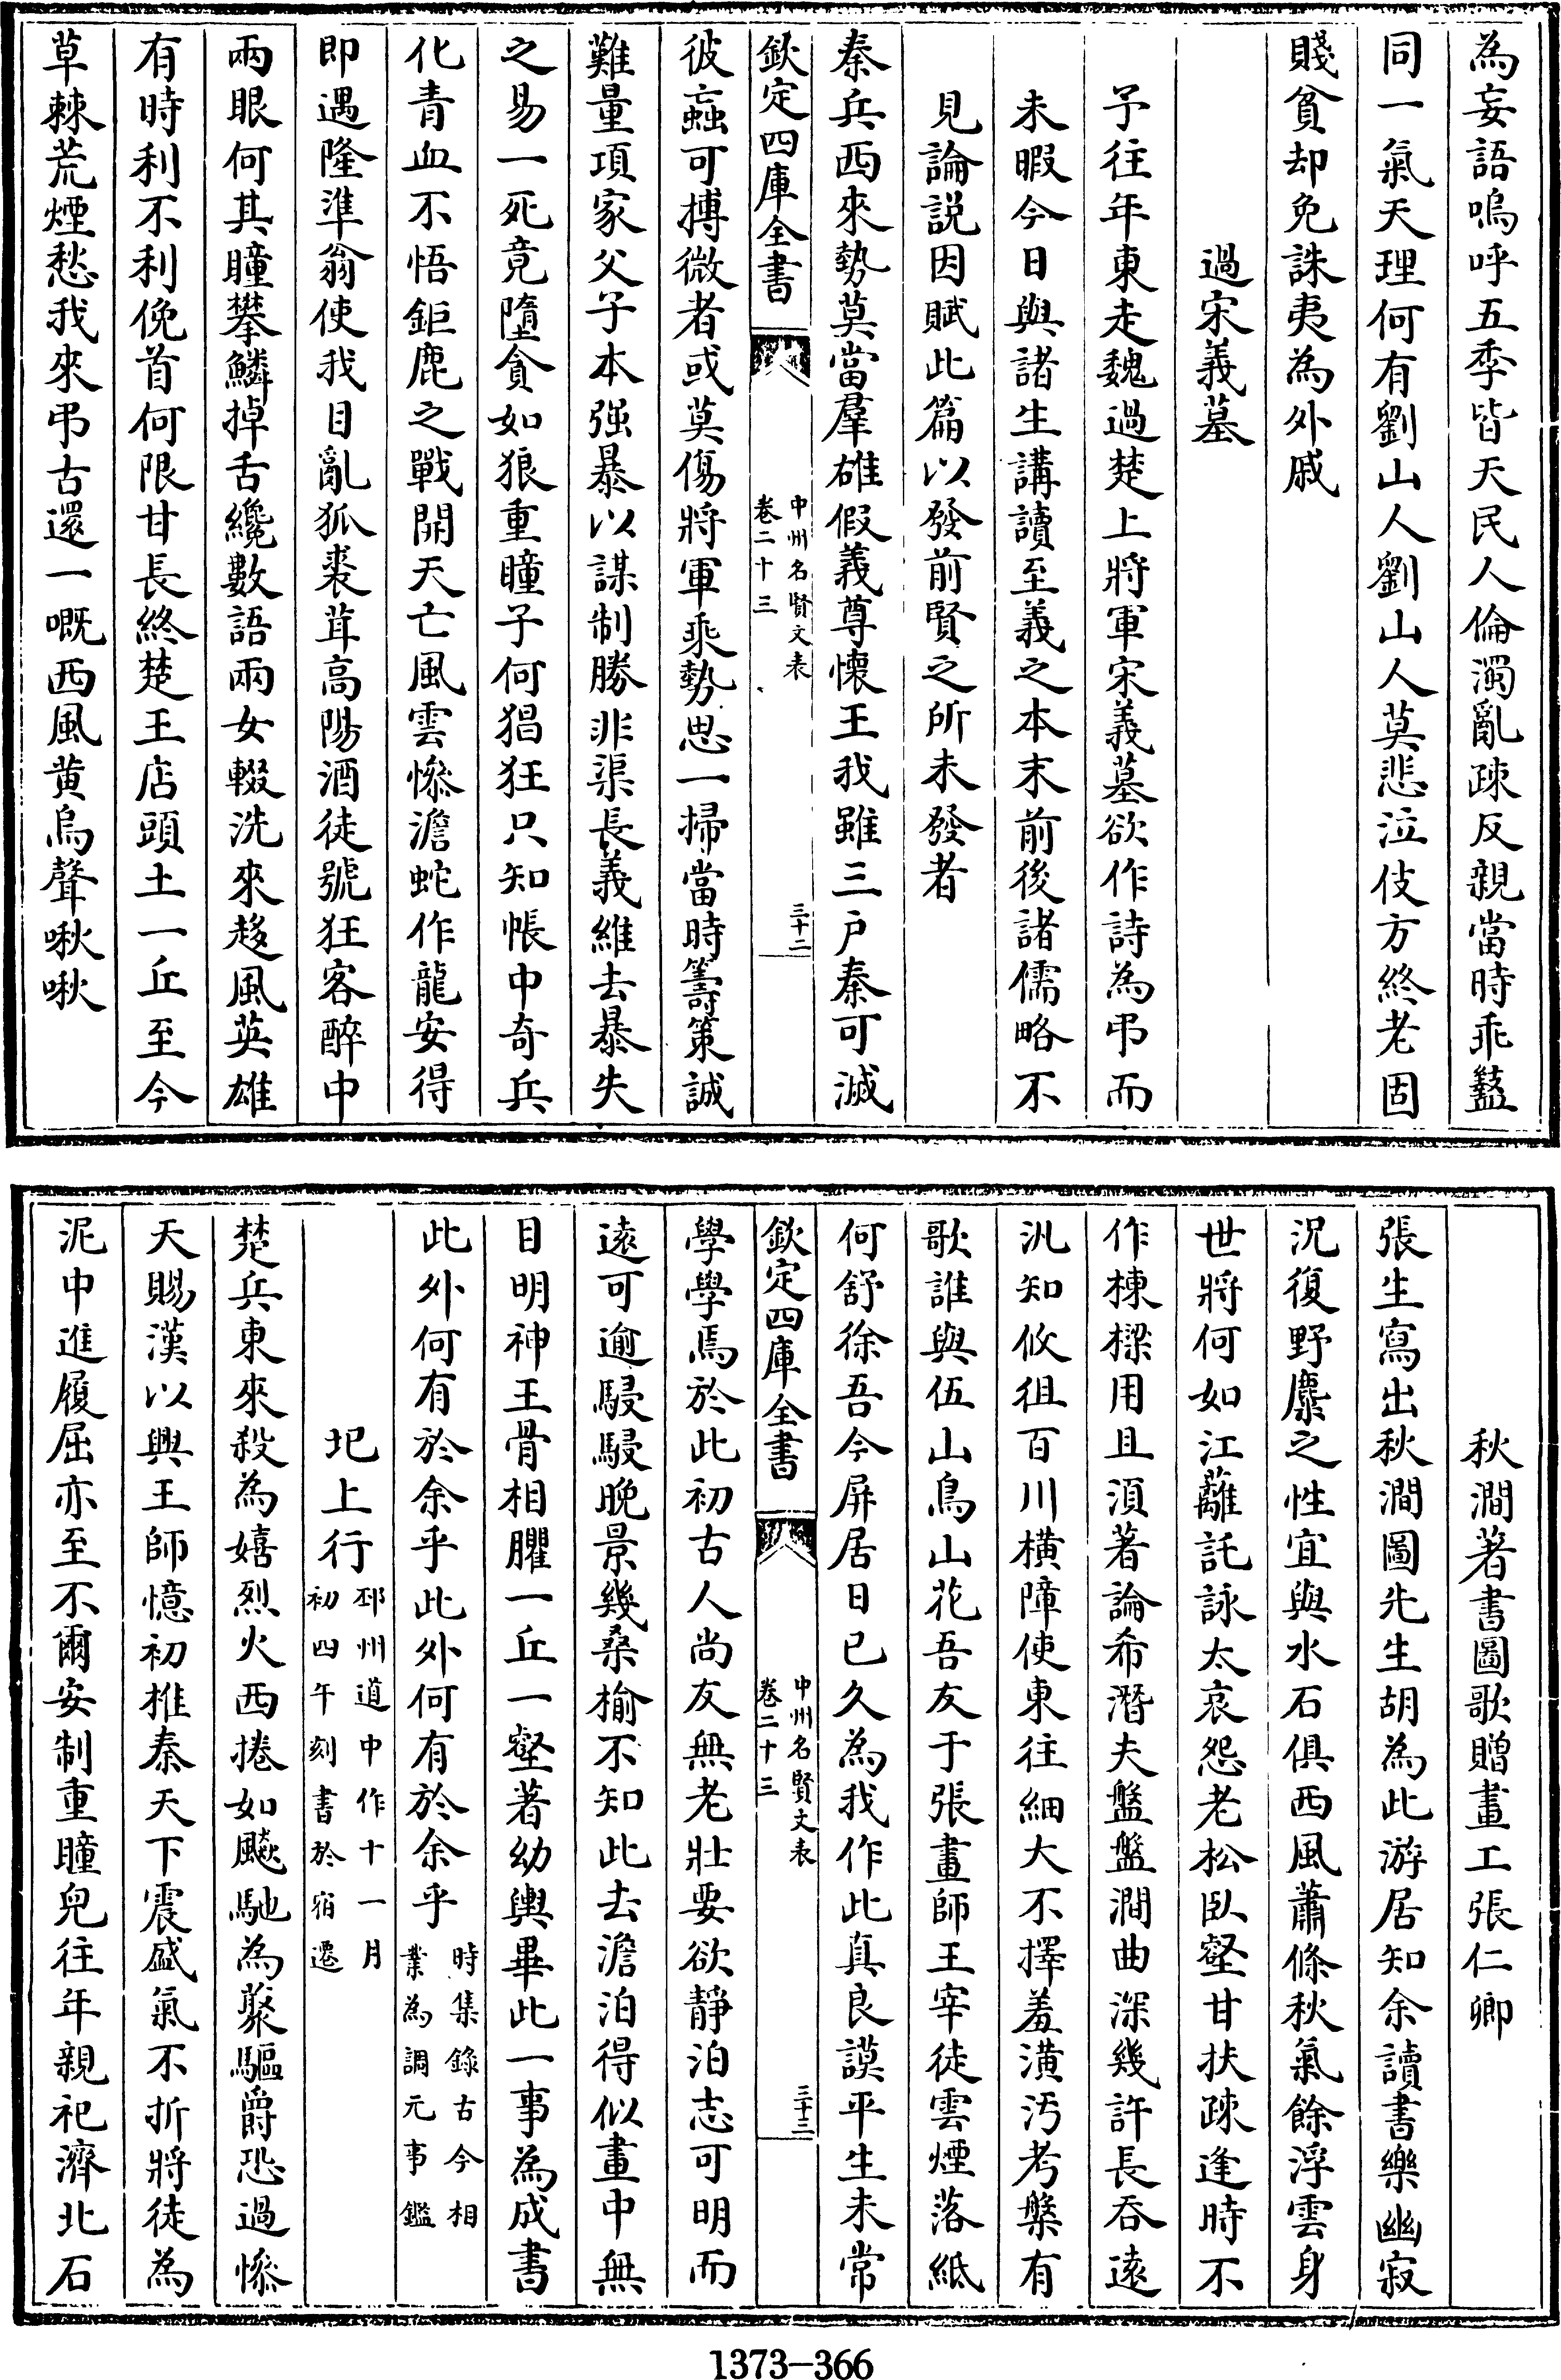 為妄語嗚呼五季皆天民人倫濁亂疎反親當時乖盭
同一氣天理何有劉山人劉山人莫悲泣伎方終老固
賤貧却免誅夷為外戚
過宋義墓
予往年東走魏過楚上將軍宋義墓欲作詩為弔而
未暇今日與諸生講讀至義之本末前後諸儒略不
見論説因賦此篇以發前賢之所未發者
秦兵西來勢莫當羣雄假義尊懷王我雖三户秦可滅
欽定四庫全書
中州名賢文表
卷二十三
三十二
彼蝱可搏微者或莫傷將軍乘勢思一掃當時籌策誠
難量項家父子本强暴以謀制勝非渠長義維去暴失
之易一死竟墮貪如狼重瞳子何猖狂只知帳中奇兵
化青血不悟鉅鹿之戰開天亡風雲慘澹蛇作龍安得
即遇隆準翁使我目亂狐裘茸高陽酒徒號狂客醉中
兩眼何其瞳攀鱗掉舌纔數語兩女輟洗來趍風英雄
有時利不利俛首何限甘長終楚王店頭土一丘至今
草棘荒煙愁我來弔古還一嘅西風黄鳥聲啾啾
秋澗著書圖歌贈畫工張仁卿
張生寫出秋澗圖先生胡為此游居知余讀書樂幽寂
況復野麋之性宜與水石俱西風蕭條秋氣餘浮雲身
世將何如江蘺託詠太哀怨老松臥壑甘扶疎逢時不
作棟樑用且須著論希潛夫盤盤澗曲深幾許長吞遠
汎知攸徂百川橫障使東往細大不擇羞潢汚考槃有
歌誰與伍山鳥山花吾友于張畫師王宰徒雲煙落紙
何舒徐吾今屏居日已久為我作此真良謨平生未常
欽定四庫全書
中州名賢文表
卷二十三
三十三
學學焉於此初古人尚友無老壯要欲靜泊志可明而
遠可逾駸駸晚景幾桑榆不知此去澹泊得似畫中無
目明神王骨相臞一丘一壑著幼輿畢此一事為成書
此外何有於余乎此外何有於余乎時集錄古今相業為調元事鑑
圯上行邳州道中作十一月初四午刻書於宿遷
楚兵東來殺為嬉烈火西捲如飈馳為藂驅爵恐過慘
天賜漢以興王師憶初推秦天下震盛氣不折將徒為
泥中進履屈亦至不爾安制重瞳兒往年親祀濟北石
1373-366